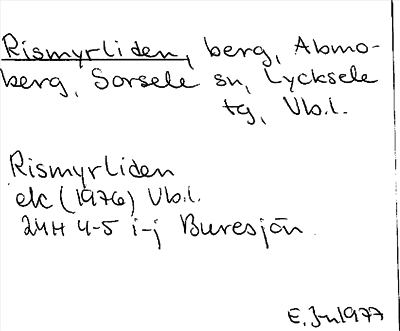 Rismyrliden, berg, Abmo-
berg, Sorsele sn, Lycksele
tg, Vb.l.
Rismyrliden
ek (1976) Vb.l.
24H 4-5 i-j Buresjön
E. Ju 1977